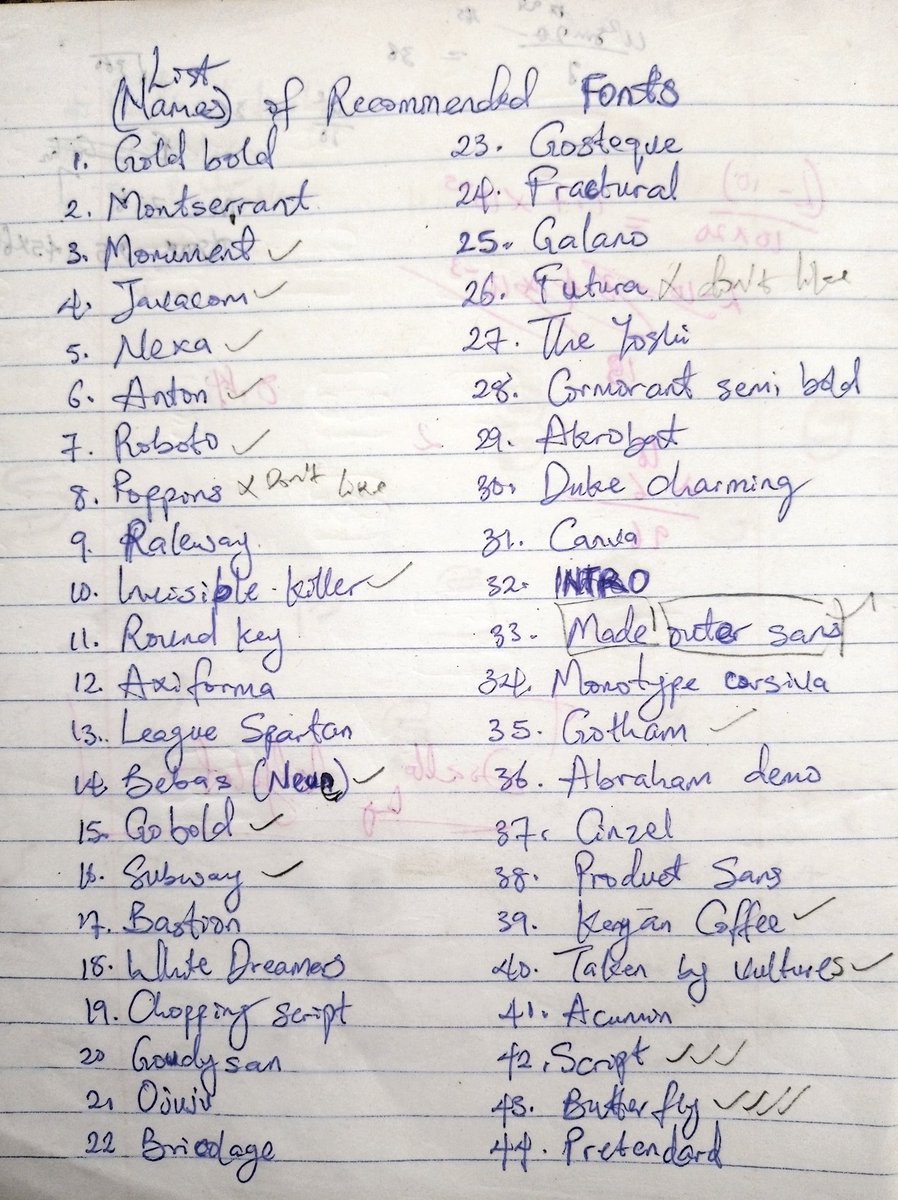 List
(Names) of Recommended Fonts
1. Gold bold
2. Montserrant
3. Monument ✓
4. Javacom ✓
5. Nexa ✓
6. Anton ✓
7. Roboto ✓
8. Poppins x Don't like
9. Raleway
10. Invisible Killer ✓
11. Round key
12. Axiforma
13. League Spartan
14. Bebas (Neue) ✓
15. Gobold ✓
16. Subway ✓
17. Bastion
18. White Dreamers
19. Chopping script
20 Goudy san
21 Ojuju
22 Bricolage
23. Gosteque
24. Fractural
25. Galano
26. Futura x don't like
27. The Yoshi
28. Cormorant semi bold
29. Akrobat
30. Duke charming
31. Canva
32. INTRO
33. Made outer sans ✓
34. Monotype corsiva
35. Gotham ✓
36. Abraham demo
37. Cinzel
38. Product Sans
39. Kenyan Coffee ✓
40. Taken by vultures ✓
41. Acumin
42. Script ✓✓✓
43. Butterfly ✓✓✓✓
44. Pretendard